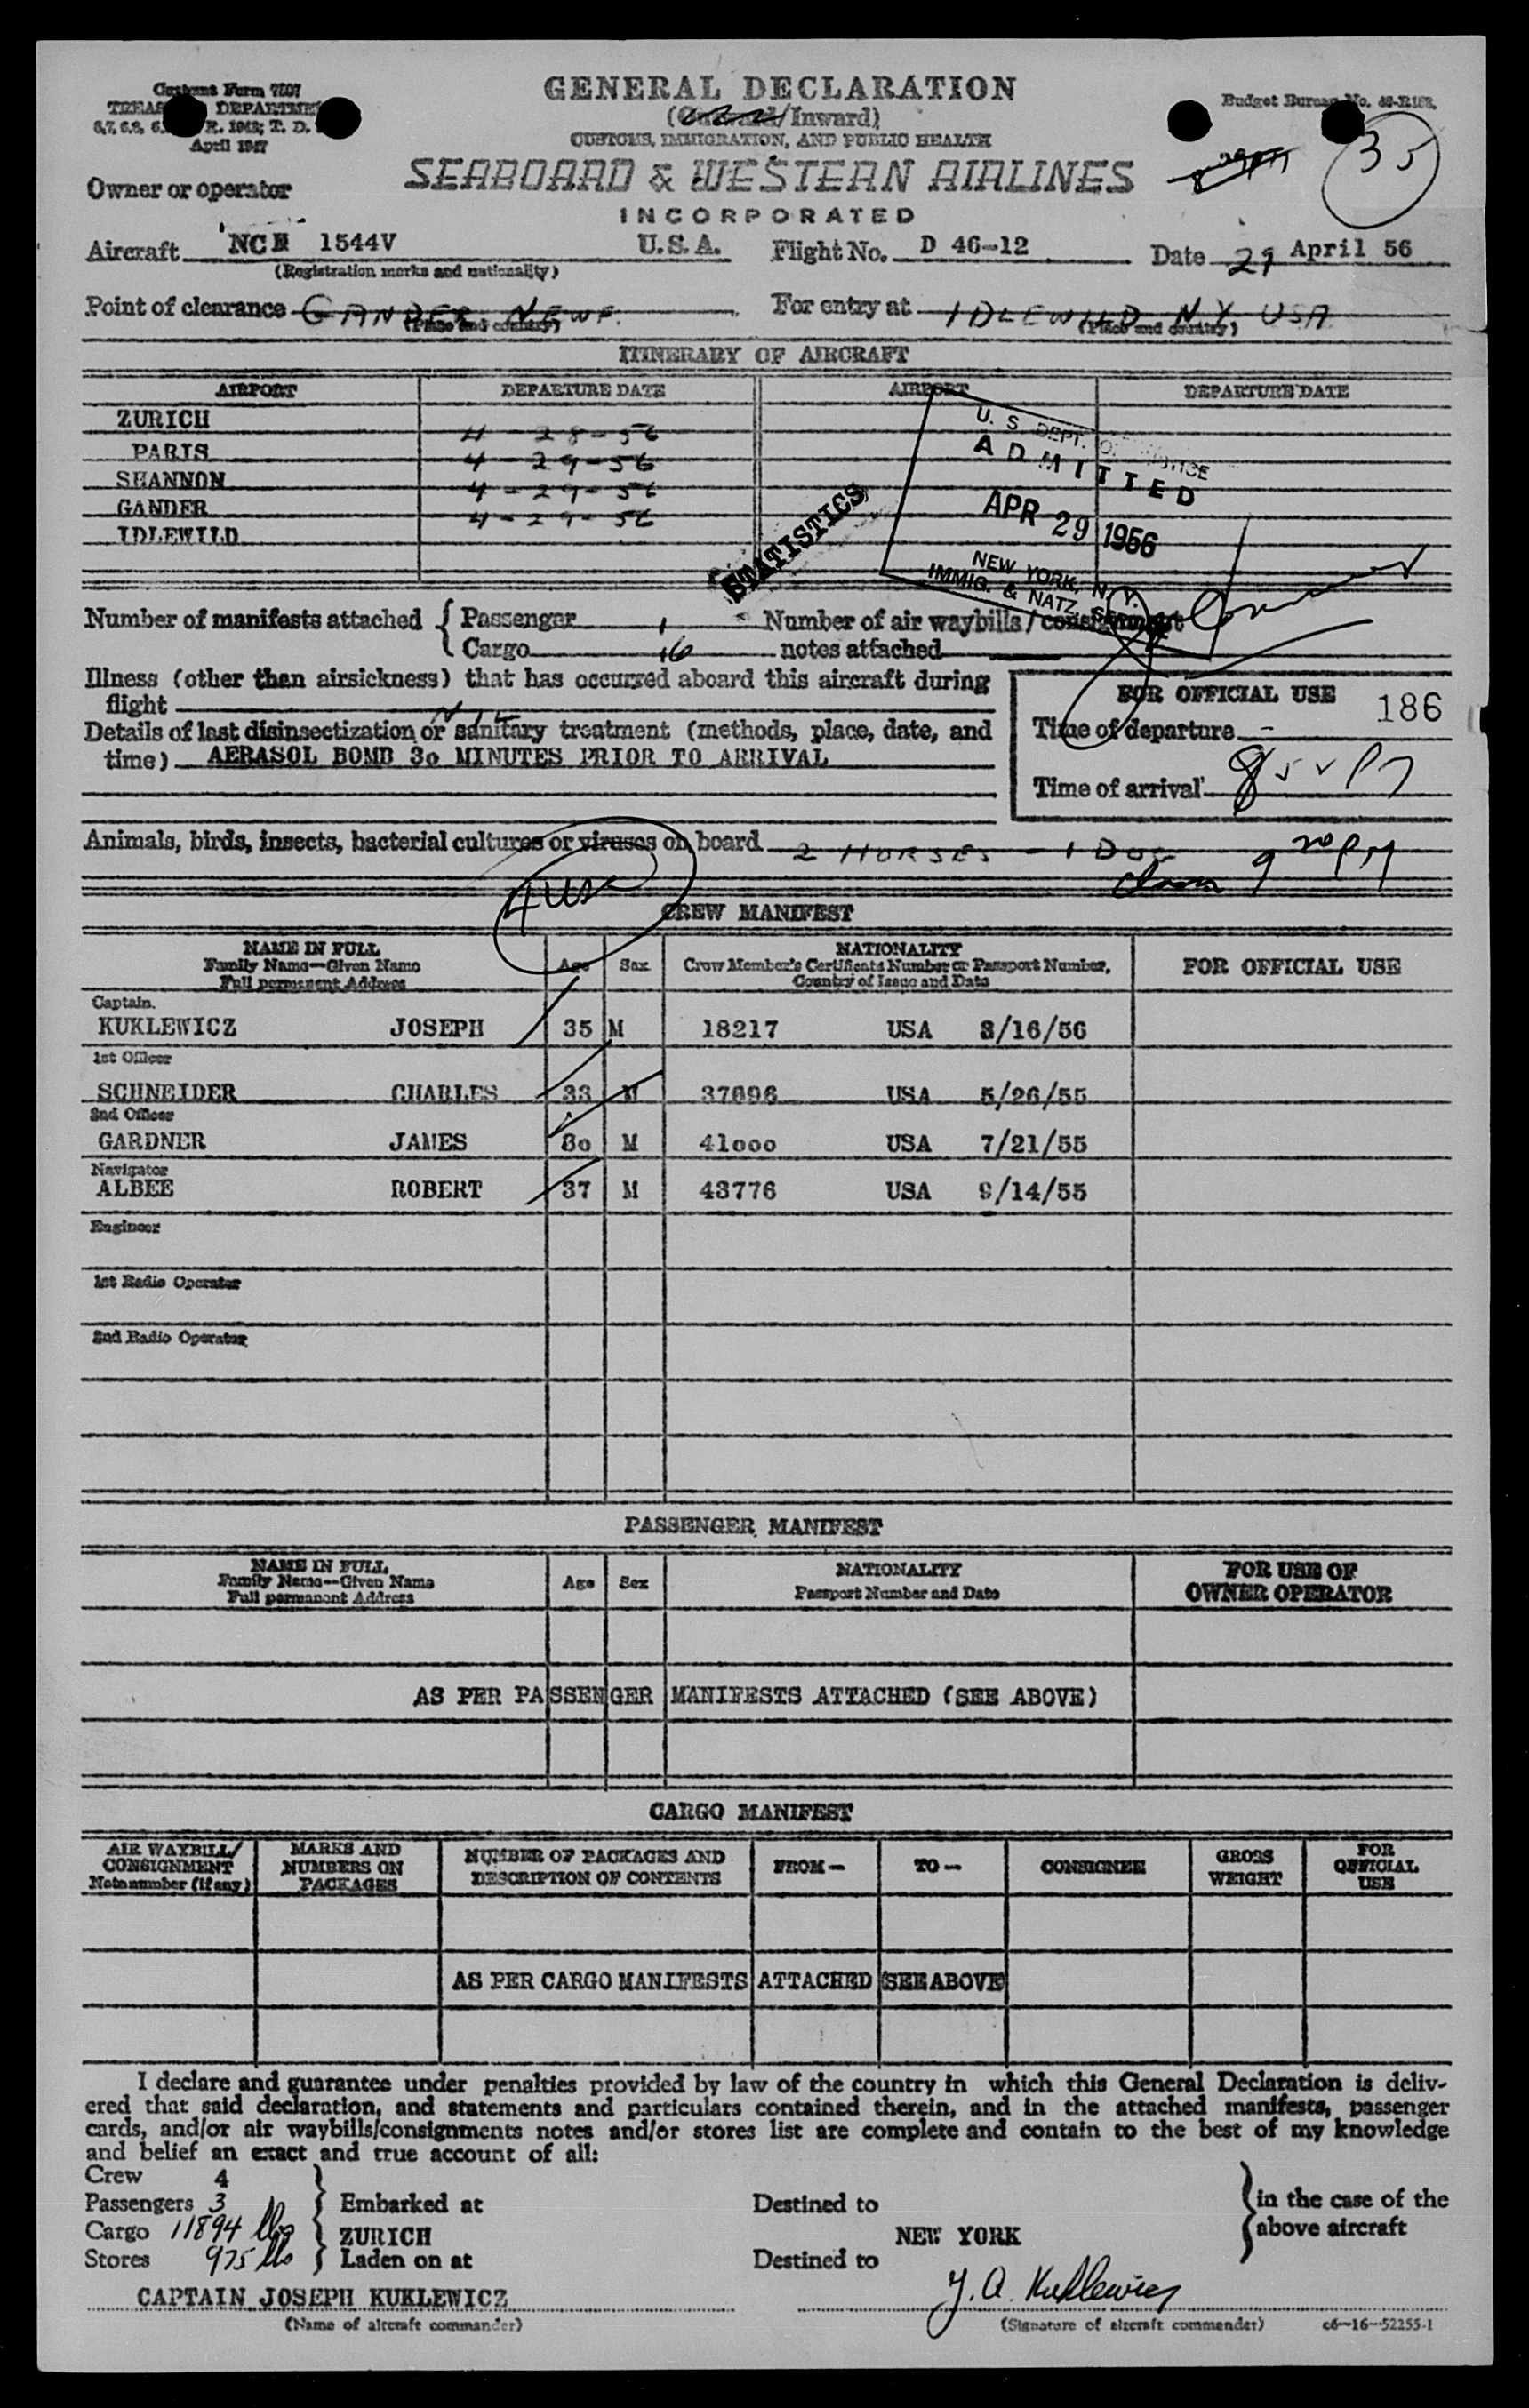 Customs Form 7507
GENERAL DECLARATION
Budget Bureau No.
TREASURY DEPARTMENT
(Outward/Inward)
35
R. 1942; T. D.
April 1947
CUSTOMS, IMMIGRATION, AND PUBLIC HEALTH
Owner or operator
SEABOARD & WESTERN AIRLINES
INCORPORATED
Aircraft NCR 1544V U.S.A. Flight No. D 46-12 Date 29 April 56
(Registration marks and nationality)
Point of clearance GANDER NEWF. For entry at IDLEWILD N Y USA
(Place and country) (Place and country)
ITINERARY OF AIRCRAFT
AIRPORT DEPARTURE DATE AIRPORT DEPARTURE DATE
ZURICH 4-28-56
PARIS 4-29-56
SHANNON 4-29-56
GANDER 4-29-56
IDLEWILD
STATISTICS
U. S. DEPT. OF JUSTICE
ADMITTED
APR 29 1956
NEW YORK, N. Y.
IMMIG. & NATZ. SERVICE
Number of manifests attached { Passenger 1 Number of air waybills/consignment
Cargo 16 notes attached
Illness (other than airsickness) that has occurred aboard this aircraft during
flight NIL
FOR OFFICIAL USE 186
Details of last disinsectization or sanitary treatment (methods, place, date, and
Time of departure -
time) AERASOL BOMB 30 MINUTES PRIOR TO ARRIVAL
Time of arrival 8
Animals, birds, insects, bacterial cultures or viruses on board 2 HORSES - 1 DOG
9 20 PM
4 USC
CREW MANIFEST
NAME IN FULL Age Sex NATIONALITY FOR OFFICIAL USE
Family Name—Given Name Crew Member's Certificate Number or Passport Number,
Full permanent Address Country of Issue and Date
Captain.
KUKLEWICZ JOSEPH 35 M 18217 USA 3/16/56
1st Officer
SCHNEIDER CHARLES 33 M 37696 USA 5/26/55
2nd Officer
GARDNER JAMES 30 M 41000 USA 7/21/55
Navigator
ALBEE ROBERT 37 M 43776 USA 9/14/55
Engineer
1st Radio Operator
2nd Radio Operator
PASSENGER MANIFEST
NAME IN FULL Age Sex NATIONALITY FOR USE OF
Family Name—Given Name Passport Number and Date OWNER OPERATOR
Full permanent Address
AS PER PASSENGER MANIFESTS ATTACHED (SEE ABOVE)
CARGO MANIFEST
AIR WAYBILL/ MARKS AND NUMBER OF PACKAGES AND FROM— TO— CONSIGNEE GROSS FOR
CONSIGNMENT NUMBERS ON DESCRIPTION OF CONTENTS WEIGHT OFFICIAL
Note number (if any) PACKAGES USE
AS PER CARGO MANIFESTS ATTACHED (SEE ABOVE)
I declare and guarantee under penalties provided by law of the country in which this General Declaration is deliv-
ered that said declaration, and statements and particulars contained therein, and in the attached manifests, passenger
cards, and/or air waybills/consignments notes and/or stores list are complete and contain to the best of my knowledge
and belief an exact and true account of all:
Crew 4
Passengers 3 Embarked at Destined to in the case of the
Cargo 11894 lbs ZURICH NEW YORK above aircraft
Stores 975 lbs Laden on at Destined to
CAPTAIN JOSEPH KUKLEWICZ J. A. Kuklewicz
(Name of aircraft commander) (Signature of aircraft commander) c6—16—52255-1